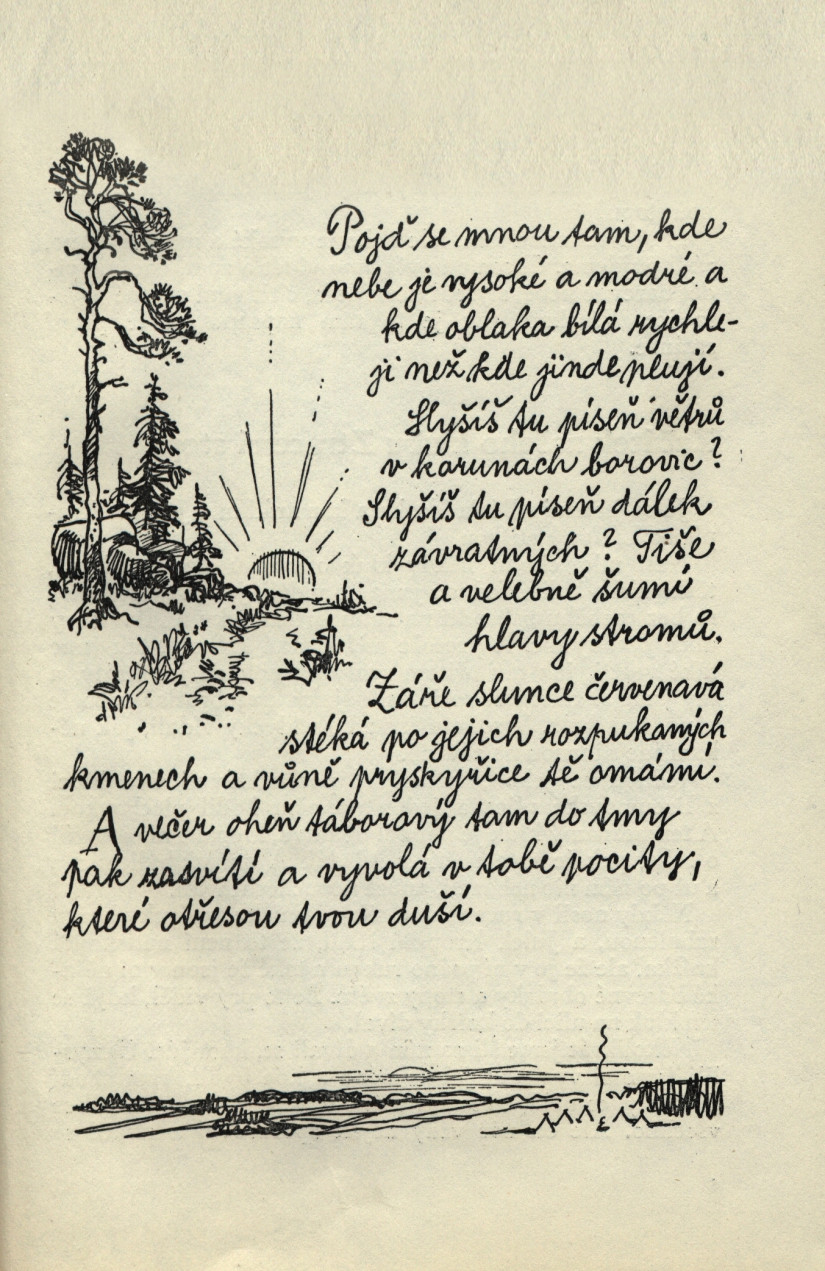 Pojď se mnou tam, kde
nebe je vysoké a modré a
kde oblaka bílá rychle-
ji než kde jinde plují.
Slyšíš tu píseň větrů
v korunách borovic?
Slyšíš tu píseň dálek
závratných? Tiše
a velebně šumí
hlavy stromů.
Záře slunce červenavá
stéká po jejich rozpukaných
kmenech a vůně pryskyřice tě omámí.
A večer oheň táborový tam do tmy
pak zasvítí a vyvolá v tobě pocity,
které otřesou tvou duší.